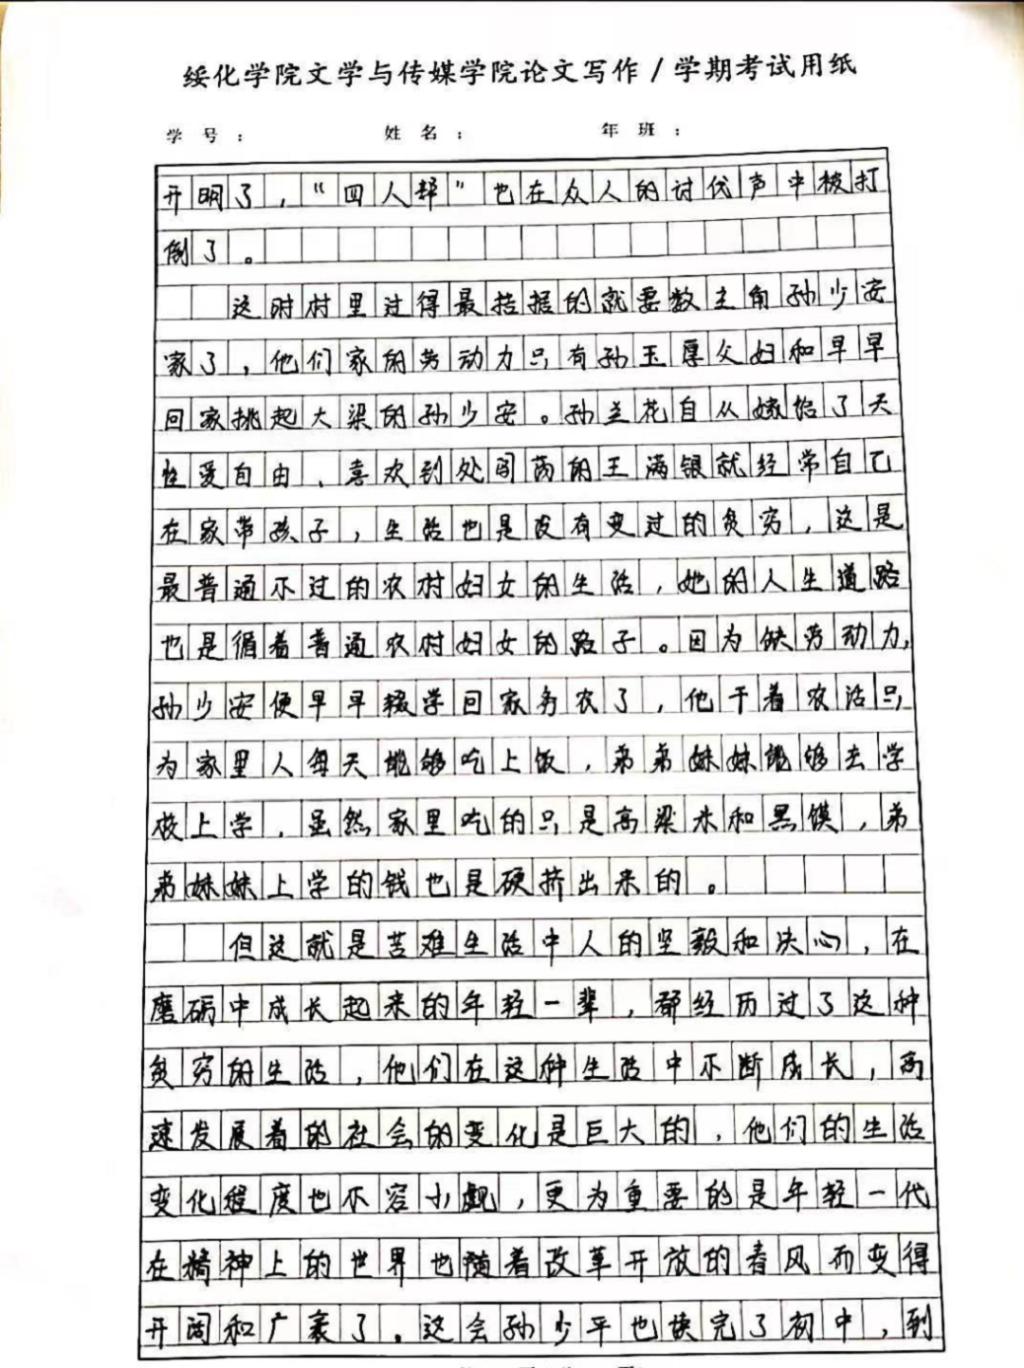 绥化学院文学与传媒学院论文写作/学期考试用纸
学号： 姓名： 年班：
开明了，“四人帮”也在众人的讨伐声中被打
倒了。
这时村里过得最拮据的就要数主角孙少安
家了，他们家的劳动力只有孙玉厚父妇和早早
回家挑起大梁的孙少安。孙兰花自从嫁给了天
性爱自由、喜欢到处闯荡的王满银就经常自己
在家带孩子，生活也是没有变过的贫穷，这是
最普通不过的农村妇女的生活，她的人生道路
也是循着普通农村妇女的路子。因为缺劳动力，
孙少安便早早辍学回家务农了，他干着农活只
为家里人每天能够吃上饭，弟弟妹妹能够去学
校上学，虽然家里吃的只是高粱米和黑馍，弟
弟妹妹上学的钱也是硬挤出来的。
但这就是苦难生活中人的坚毅和决心，在
磨砺中成长起来的年轻一辈，都经历过了这种
贫穷的生活，他们在这种生活中不断成长，高
速发展着的社会的变化是巨大的，他们的生活
变化程度也不容小觑，更为重要的是年轻一代
在精神上的世界也随着改革开放的春风而变得
开阔和广袤了。这会孙少平也读完了初中，到